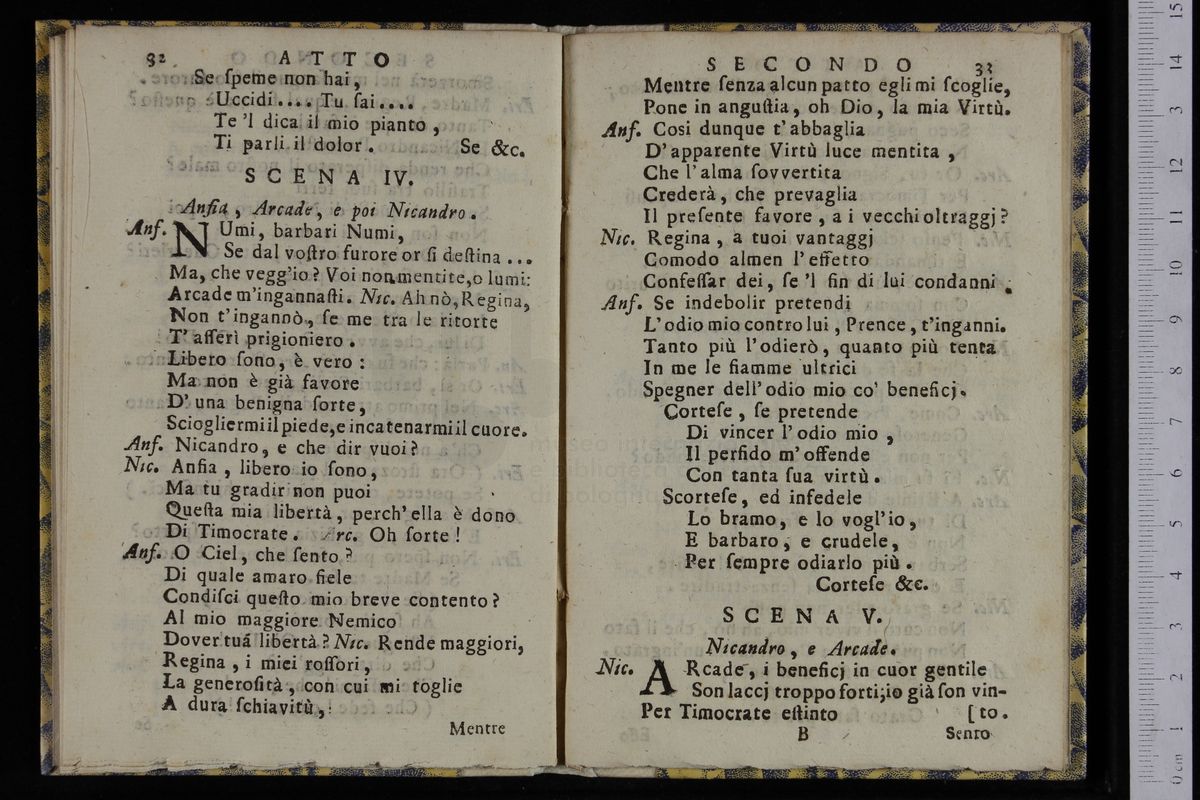 32 ATTO
Se ſpeme non hai,
Uccidi .... Tu ſai....
Te 'l dica il mio pianto,
Ti parli il dolor. Se &c.
SCENA IV.
Anſia, Arcade, e poi Nicandro.
Anſ. NUmi, barbari Numi,
Se dal voſtro furore or ſi deſtina ...
Ma, che vegg'io? Voi non mentite, o lumi:
Arcade m'ingannaſti. Nic. Ah nò, Regina,
Non t'ingannò, ſe me tra le ritorte
T' aſſerì prigioniero.
Libero ſono, è vero:
Ma non è già favore
D' una benigna ſorte,
Sciogliermi il piede, e incatenarmi il cuore.
Anſ. Nicandro, e che dir vuoi?
Nic. Anſia, libero io ſono,
Ma tu gradir non puoi
Queſta mia libertà, perch' ella è dono
Di Timocrate. Arc. Oh ſorte!
Anſ. O Ciel, che ſento?
Di quale amaro fiele
Condiſci queſto mio breve contento?
Al mio maggiore Nemico
Dover tuá libertà? Nic. Rende maggiori,
Regina, i miei roſſori,
La generoſità, con cui mi toglie
A dura ſchiavitù,
Mentre
SECONDO 33
Mentre ſenza alcun patto egli mi ſcoglie,
Pone in anguſtia, oh Dio, la mia Virtù.
Anſ. Cosi dunque t' abbaglia
D' apparente Virtù luce mentita,
Che l' alma ſovvertita
Crederà, che prevaglia
Il preſente favore, a i vecchi oltraggj?
Nic. Regina, a tuoi vantaggj
Comodo almen l' effetto
Confeſſar dei, ſe 'l fin di lui condanni.
Anſ. Se indebolir pretendi
L' odio mio contro lui, Prence, t'inganni.
Tanto più l'odierò, quanto più tenta
In me le fiamme ultrici
Spegner dell' odio mio co' beneficj.
Corteſe, ſe pretende
Di vincer l' odio mio,
Il perfido m' offende
Con tanta ſua virtù.
Scorteſe, ed infedele
Lo bramo, e lo vogl'io,
E barbaro, e crudele,
Per ſempre odiarlo più.
Corteſe &c.
SCENA V.
Nicandro, e Arcade.
Nic. ARcade, i beneficj in cuor gentile
Son laccj troppo forti; io già ſon vin-
Per Timocrate eſtinto [to.
B Sento